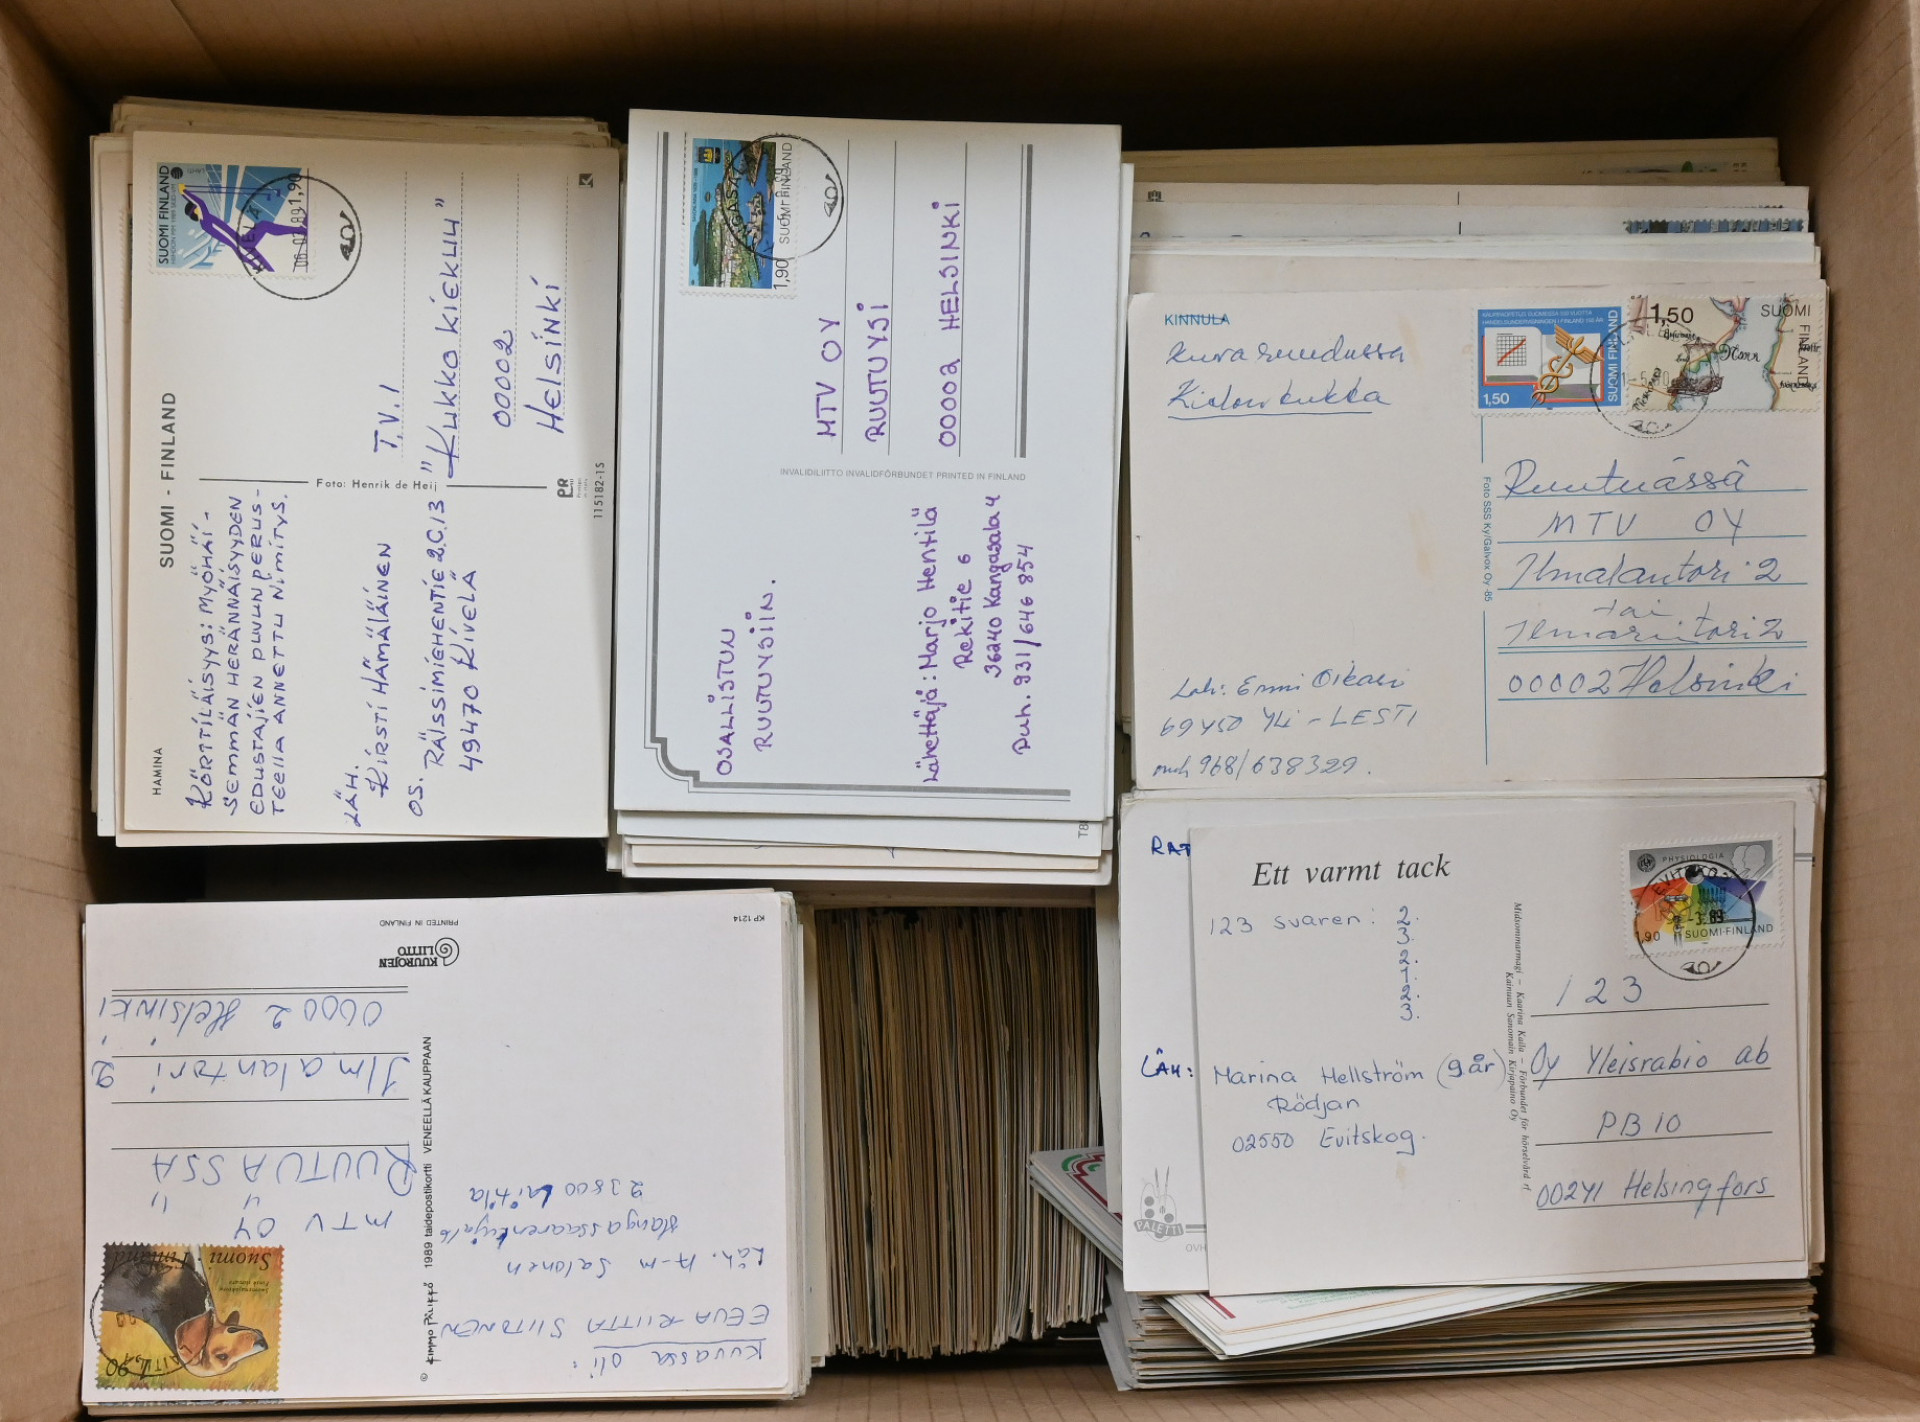 SUOMI FINLAND
1,90
06.03.89
SUOMI - FINLAND
HAMINA
Foto: Henrik de Heij
PR
115182-1S
KÖRTTILÄISYYS: MYÖHÄI-
SEMMÄN HERÄNNÄISYYDEN
EDUSTAJIEN PUVUN PERUS-
TEELLA ANNETTU NIMITYS.
LÄH.
KIRSTI HÄMÄLÄINEN
OS. RÄISSIMIEHENTIE 2.C.13
49470 KIVELÄ
T.V. 1
"KUKKO KIEKUU"
00002
HELSINKI
1,90 SUOMI FINLAND
MTV OY
RUUTUYSI
00002 HELSINKI
INVALIDILIITTO INVALIDFÖRBUNDET PRINTED IN FINLAND
OSALLISTUN
RUUTUYSIIN.
Lähettäjä: Marjo Hentilä
Rekitie 6
36240 Kangasala 4
Puh. 931/646 854
T8
KINNULA
Kuva ruudussa
Kielonkukka
SUOMI FINLAND
1,50
1,50
SUOMI
FINLAND
Foto SSS Ky/Galvox Oy -85
Ruutuässä
MTV OY
Ilmalantori 2
tai
Ilmarintori 2
00002 Helsinki
Läh: Enni Oikari
69450 Yli-LESTI
puh 968/638329.
KP 1214
PRINTED IN FINLAND
KUUROJEN
LIITTO
© KIMMO PÄLIKKÖ 1989 taidepostikortti VENEELLÄ KAUPPAAN
Kuvassa oli:
EEVA-RIITTA SIITONEN
Läh. A-M Salonen
Hangassaarenkuja 6
23800 Laitila
MTV OY
RUUTUÄSSÄ
Ilmalantori 2
00002 Helsinki
Suomi Finland
1,90
RAT
LÄH:
PALETTI
OVH
Ett varmt tack
123 svaren: 2.
3
2
1
2
3
Marina Hellström (9 år)
Rödjan
02550 Evitskog.
Midsommarmagi – Kaarina Kaila – Förbundet för hörselvård rf.
Kainuun Sanomain Kirjapaino Oy
PHYSIOLOGIA
EVITSKOG
-3.89
1,90 SUOMI-FINLAND
123
Oy Yleisradio ab
PB 10
00241 Helsingfors